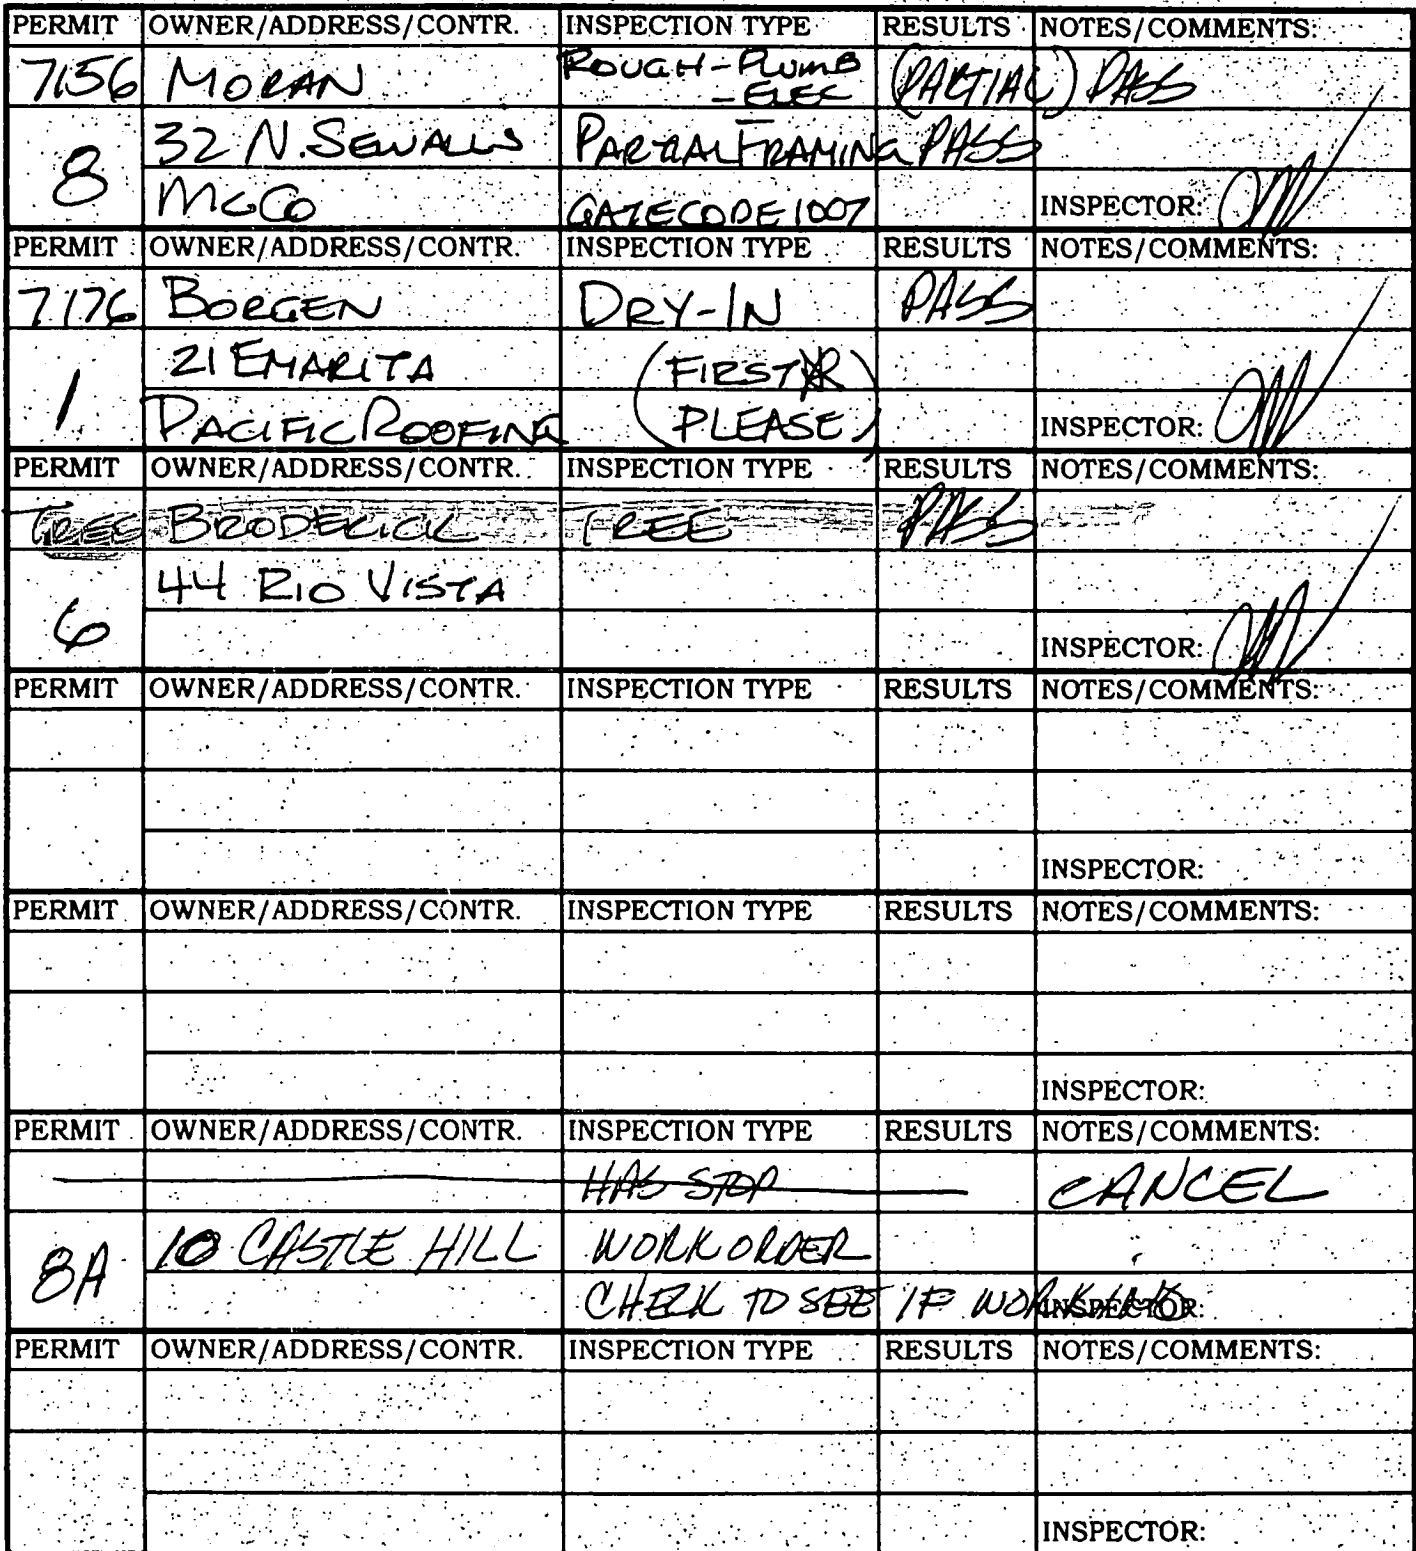 PERMIT OWNER/ADDRESS/CONTR. INSPECTION TYPE RESULTS NOTES/COMMENTS:
7156 MORAN ROUGH-PLUMB (PARTIAL) PASS
-ELEC
8 32 N. SEWALLS PARTIAL FRAMING PASS
McCo GATE CODE 1007 INSPECTOR:
PERMIT OWNER/ADDRESS/CONTR. INSPECTION TYPE RESULTS NOTES/COMMENTS:
7176 BORGEN DRY-IN PASS
1 21 EMARITA (FIRST
PACIFIC ROOFING PLEASE) INSPECTOR:
PERMIT OWNER/ADDRESS/CONTR. INSPECTION TYPE RESULTS NOTES/COMMENTS:
TREE BRODERICK TREE PASS
6 44 RIO VISTA
INSPECTOR:
PERMIT OWNER/ADDRESS/CONTR. INSPECTION TYPE RESULTS NOTES/COMMENTS:
INSPECTOR:
PERMIT OWNER/ADDRESS/CONTR. INSPECTION TYPE RESULTS NOTES/COMMENTS:
INSPECTOR:
PERMIT OWNER/ADDRESS/CONTR. INSPECTION TYPE RESULTS NOTES/COMMENTS:
HAS STOP CANCEL
8A 10 CASTLE HILL WORK ORDER
CHECK TO SEE IF WORKING INSPECTOR:
PERMIT OWNER/ADDRESS/CONTR. INSPECTION TYPE RESULTS NOTES/COMMENTS:
INSPECTOR: